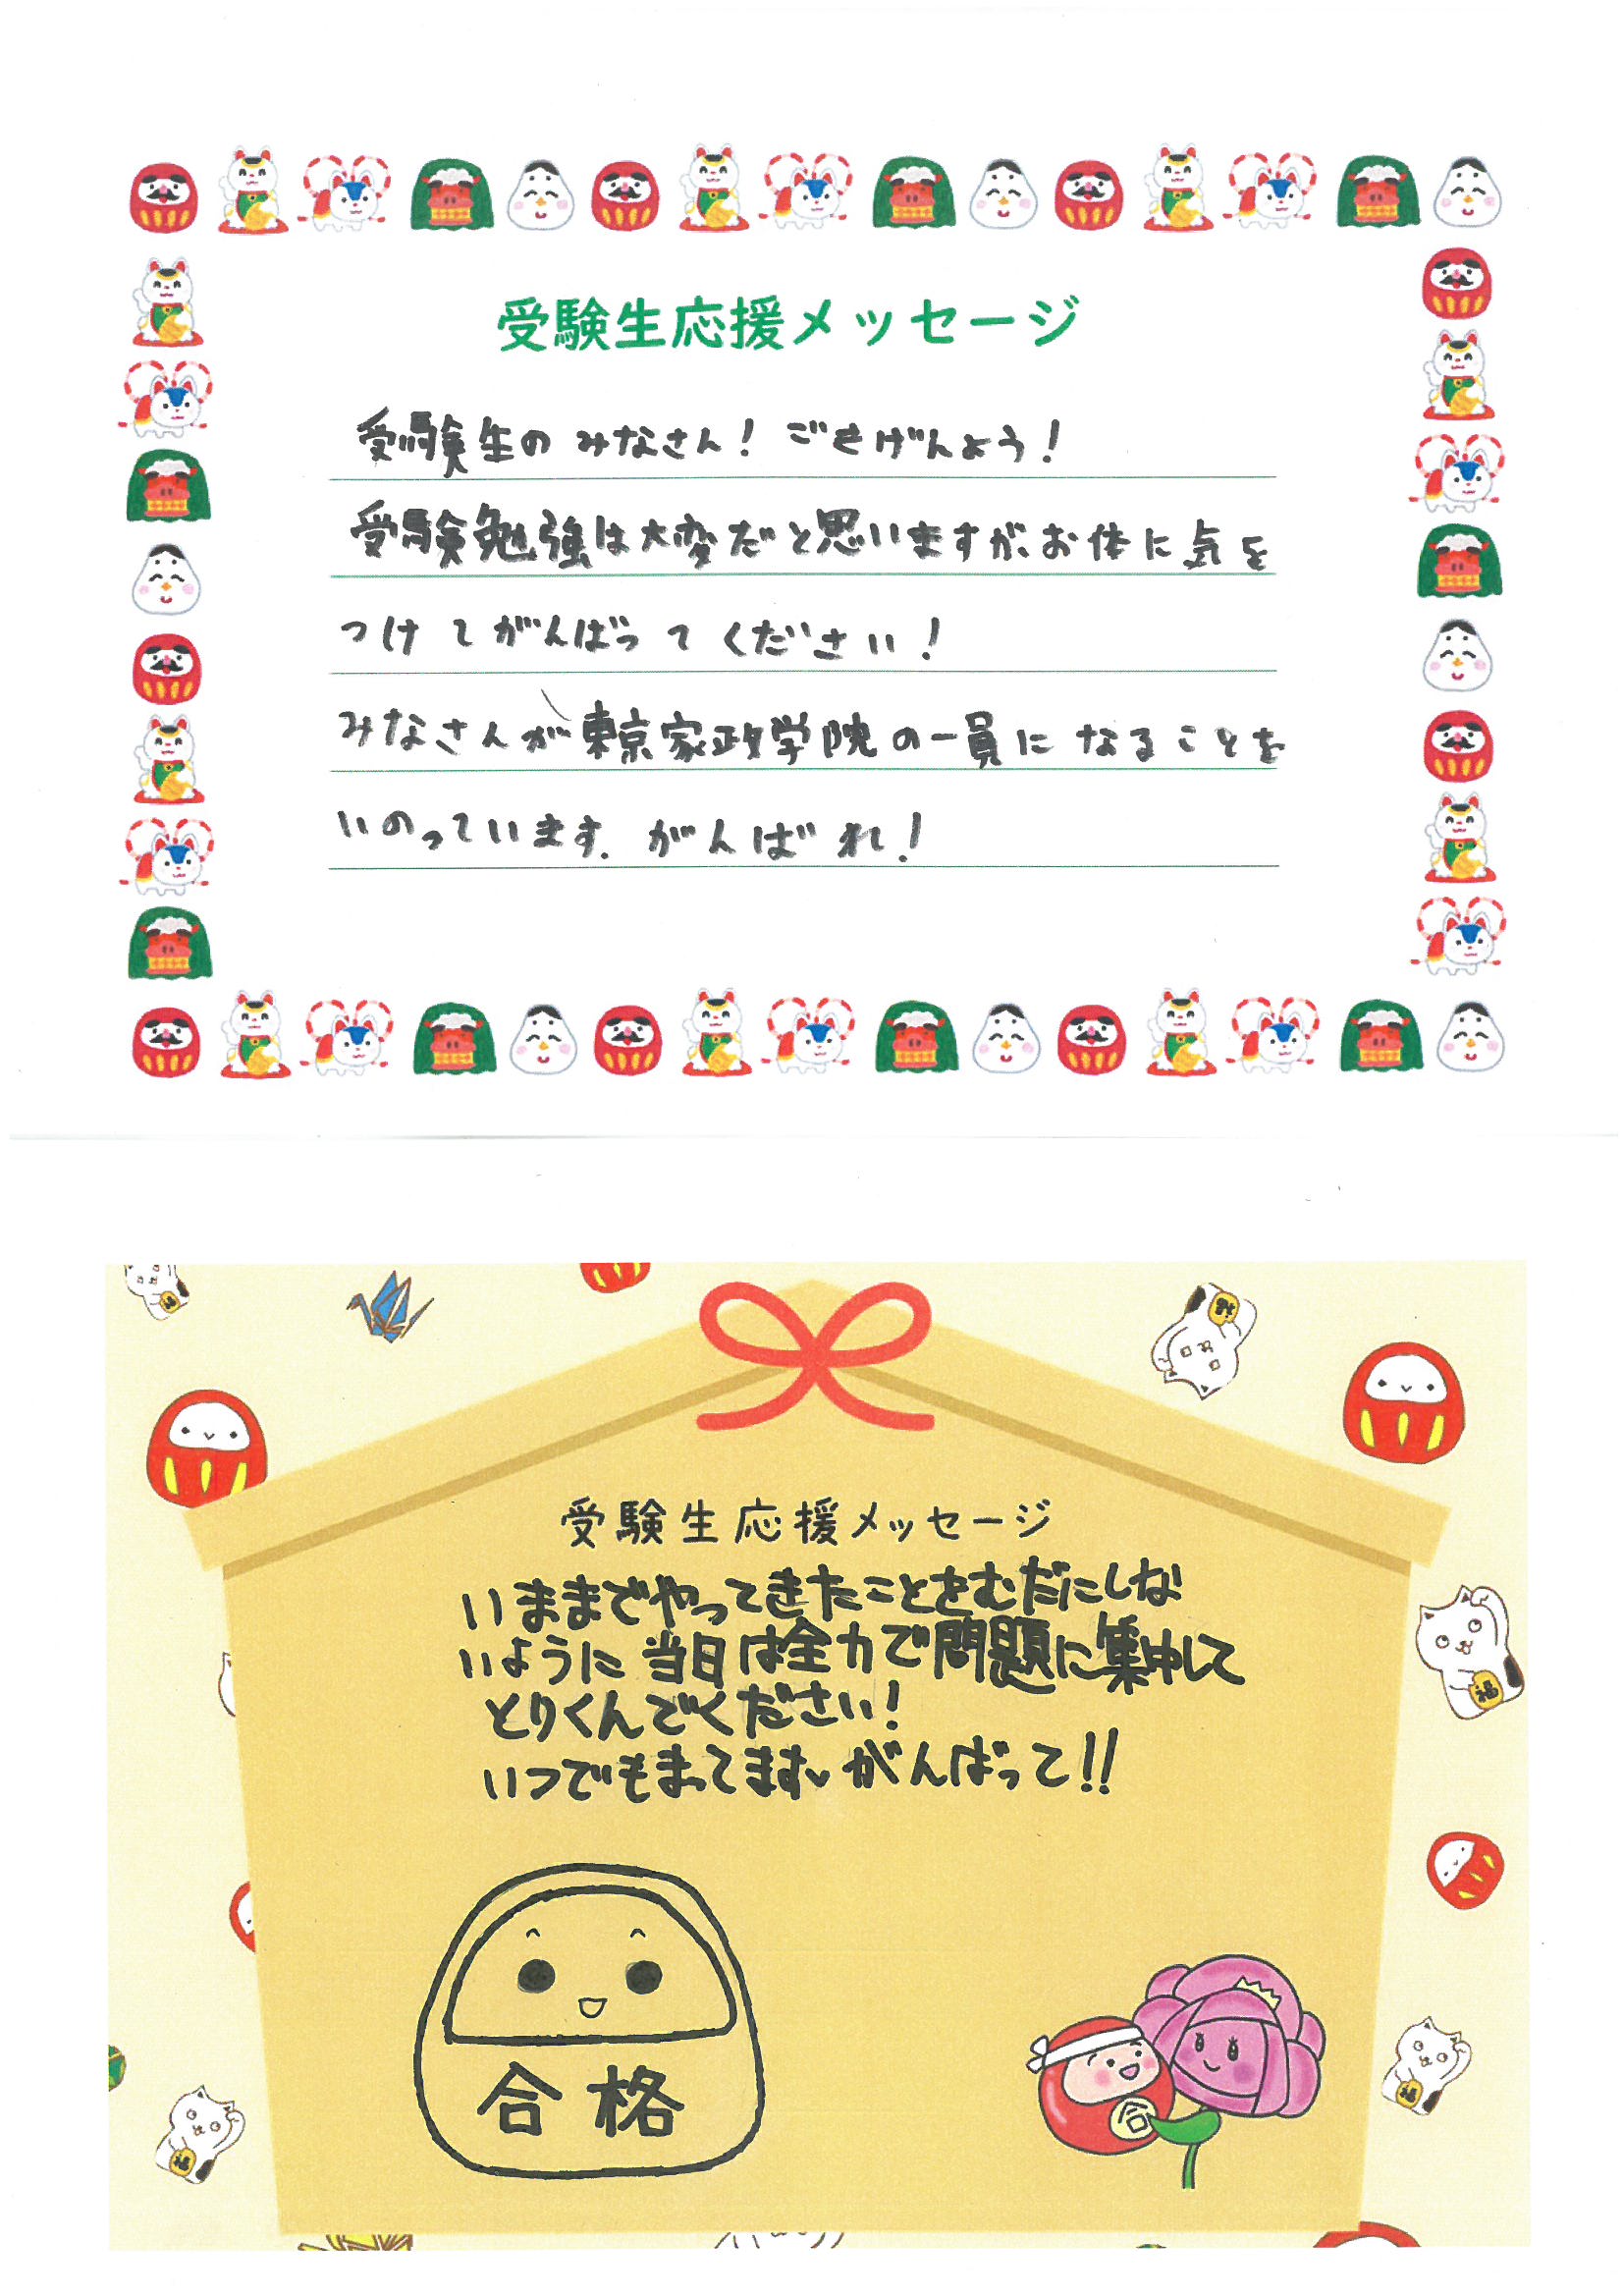 受験生応援メッセージ
受験生のみなさん！ごきげんよう！
受験勉強は大変だと思いますが、お体に気を
つけてがんばってください！
みなさんが東京家政学院の一員になることを
いのっています。がんばれ！
受験生応援メッセージ
いままでやってきたことをむだにしな
いように当日は全力で問題に集中して
とりくんでください！
いつでもまってます♡がんばって!!
合格
合
福
福
福